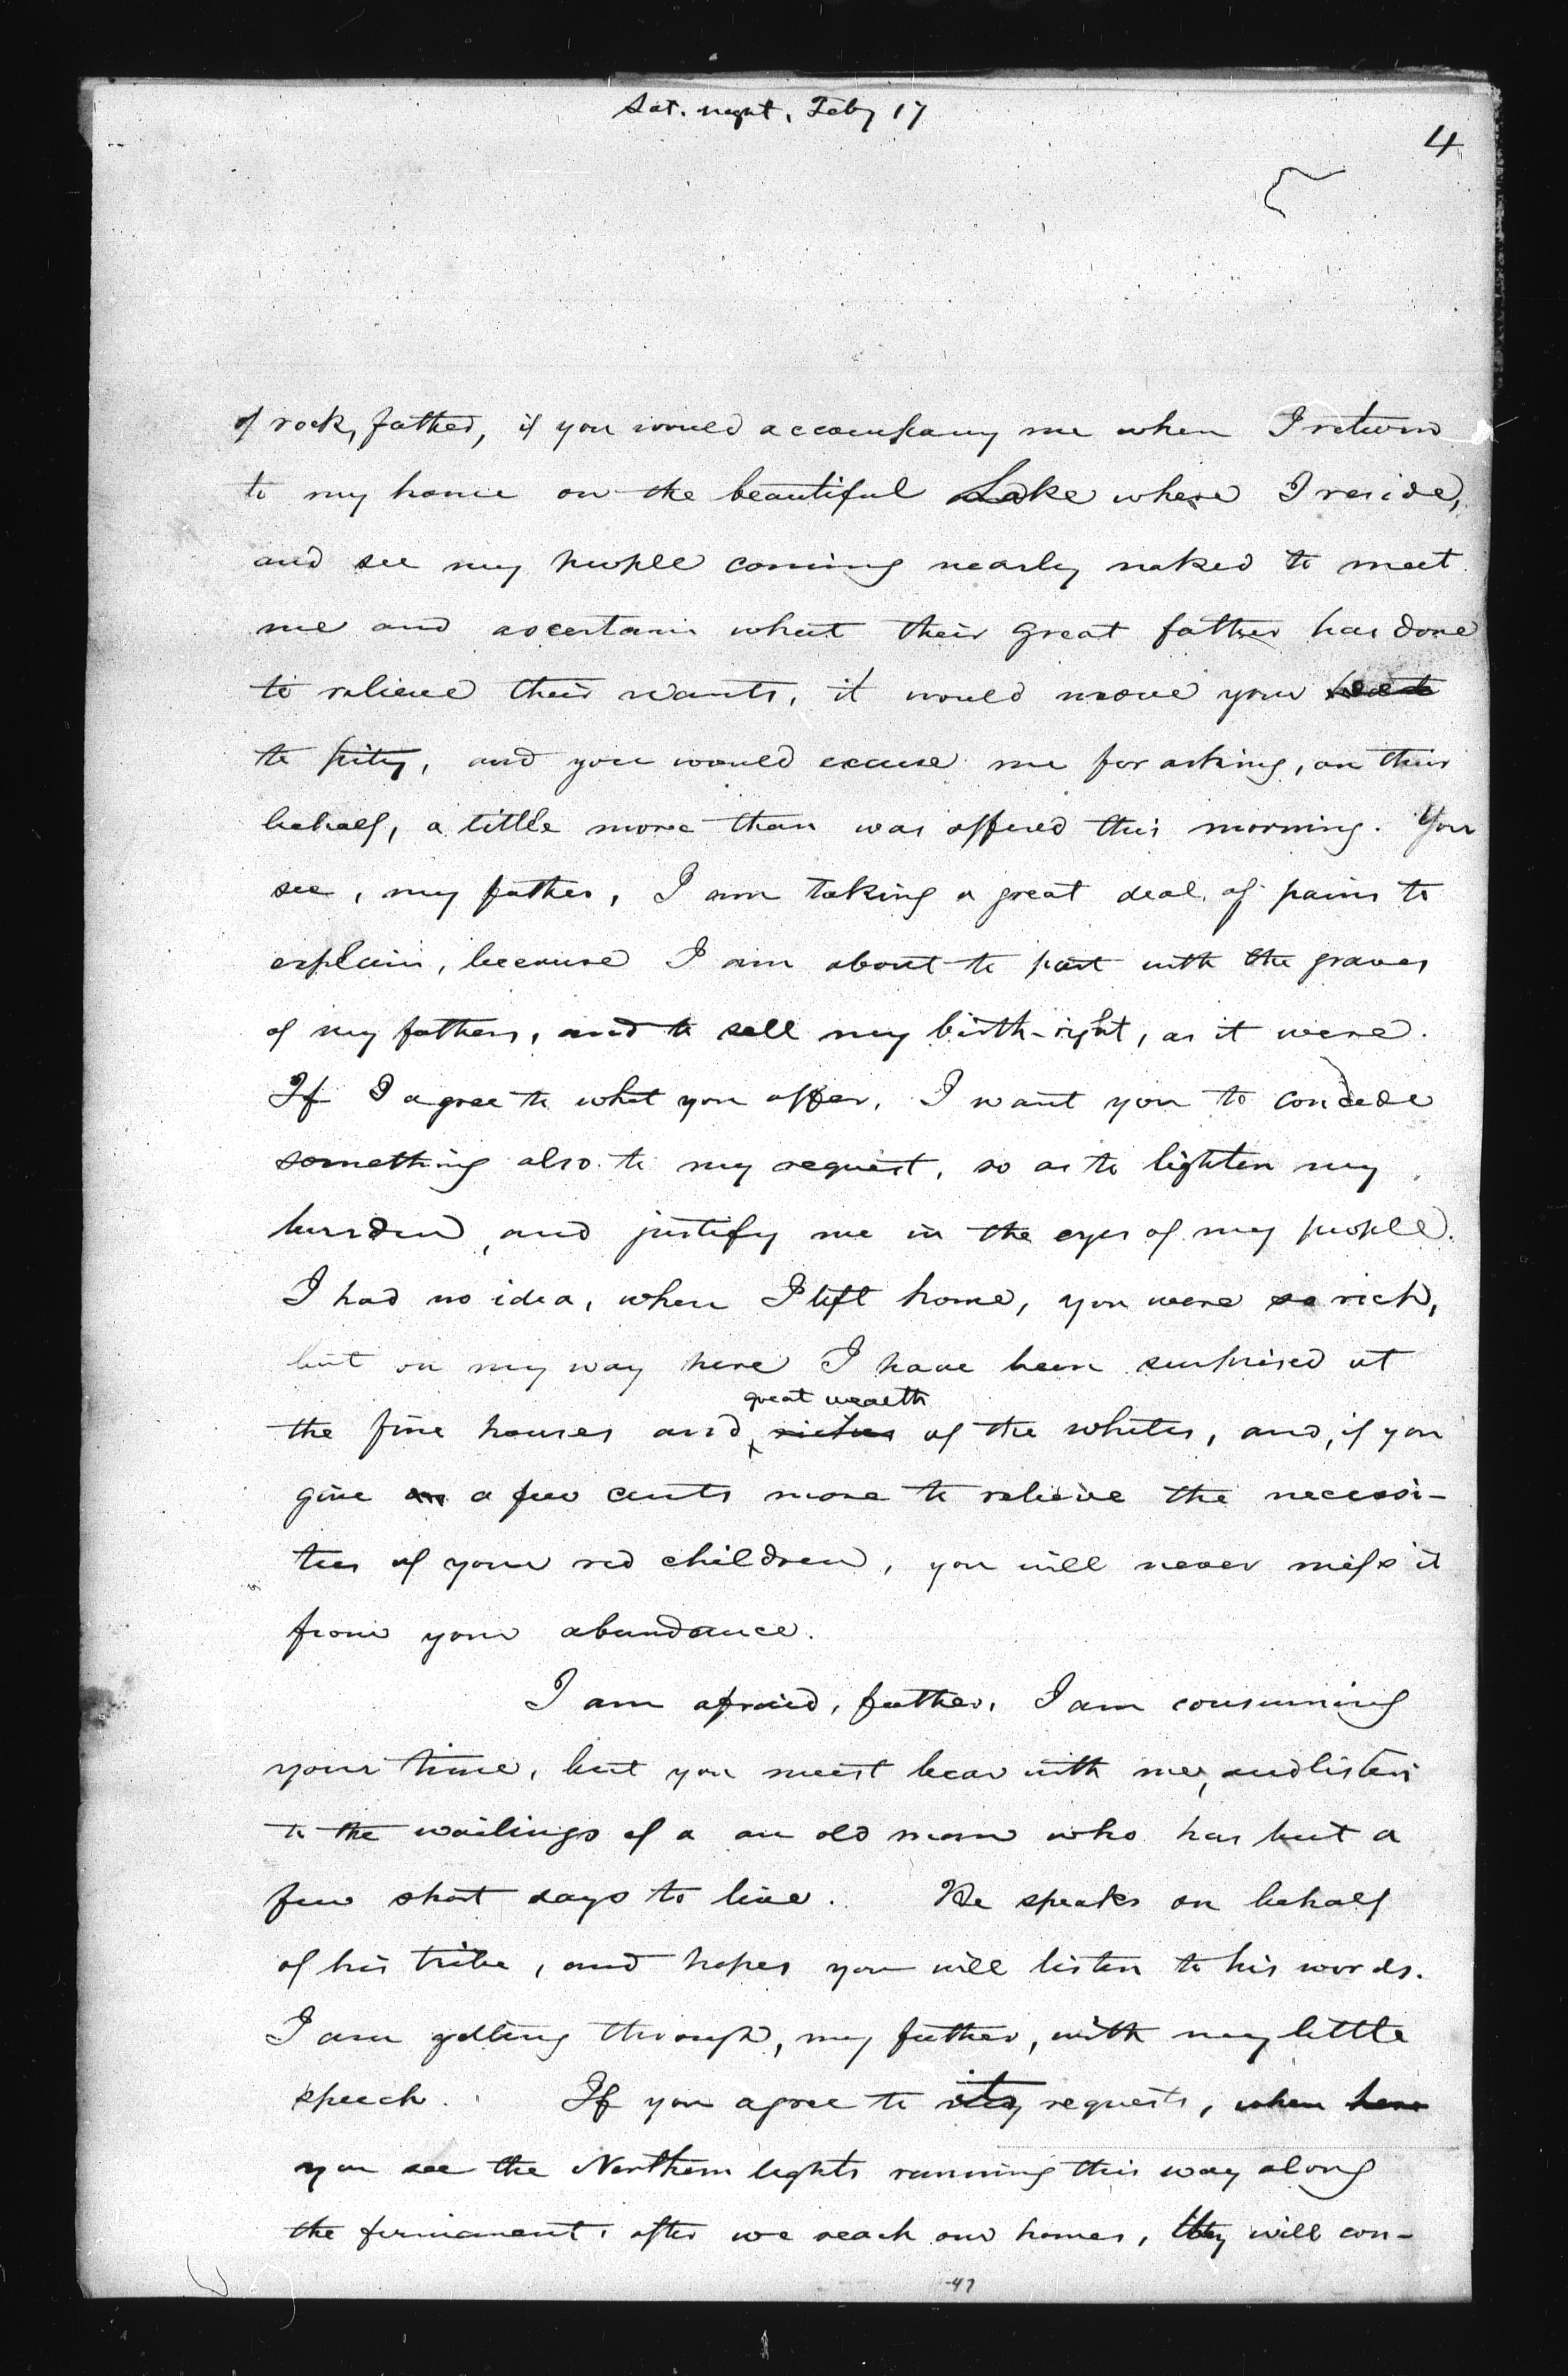 Sat. night, Feby 17
4
of rock, father, if you would accompany me when I return
to my home on the beautiful Lake where I reside,
and see my people coming nearly naked to meet
me and ascertain what their great father has done
to relieve their wants, it would move your
to pity, and you would excuse me for asking, on their
behalf, a little more than was offered this morning. You
see, my father, I am taking a great deal of pains to
explain, because I am about to part with the graves
of my fathers, and to sell my birth-right, as it were.
If I agree to what you offer, I want you to concede
something also to my request, so as to lighten my
burden, and justify me in the eyes of my people.
I had no idea, when I left home, you were so rich,
but on my way here I have been surprised at
great wealth
the fine houses and riches of the whites, and, if you
give a few cents more to relieve the necessi-
ties of your red children, you will never miss it
from your abundance.
I am afraid, father, I am consuming
your time, but you must bear with me, and listen
to the wailings of a an old man who has but a
few short days to live. He speaks on behalf
of his tribe, and hopes you will listen to his words.
I am getting through, my father, with my little
speech. If you agree to my requests, when
you see the Northern lights running this way along
the firmament, after we reach our homes, they will con-
47